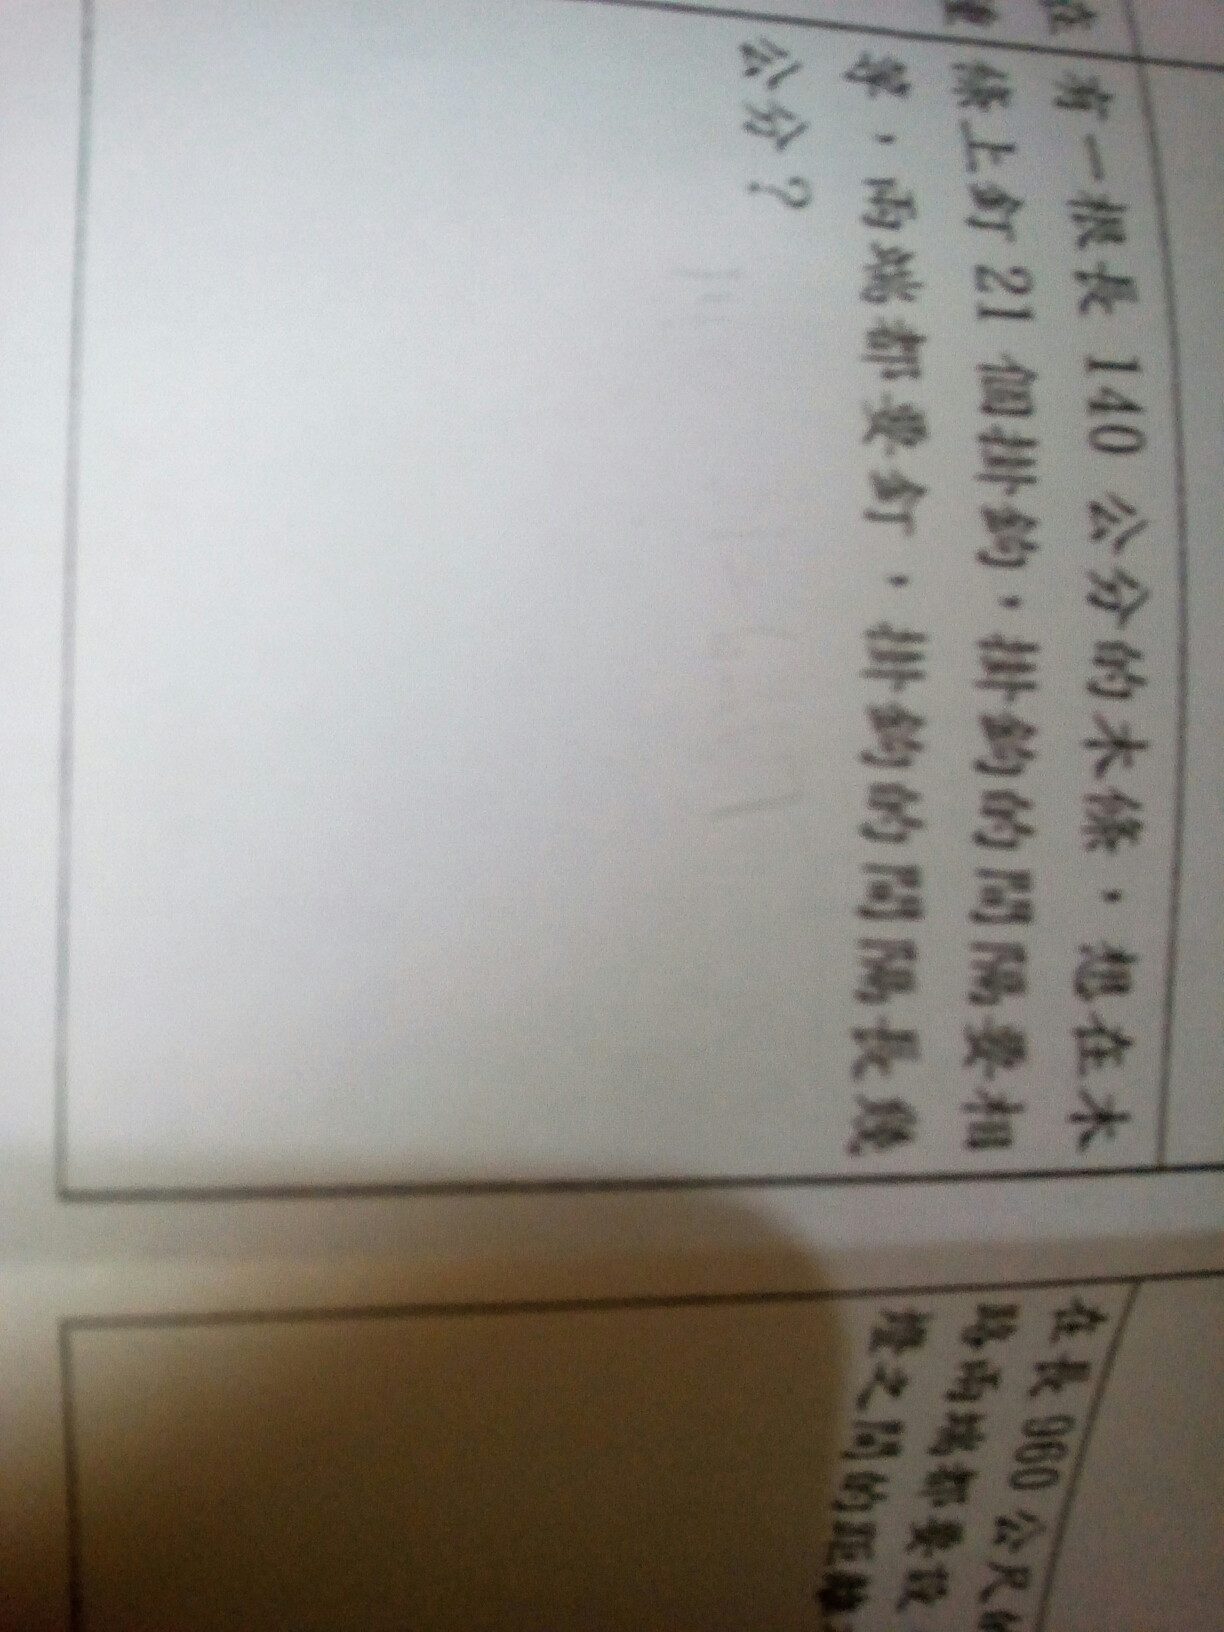 有一根長 140 公分的木條，想在木
條上釘 21 個掛鉤，掛鉤的間隔要相
等，兩端都要釘，掛鉤的間隔長幾
公分？
在長 960 公尺的
路兩端都要設
燈之間的距離